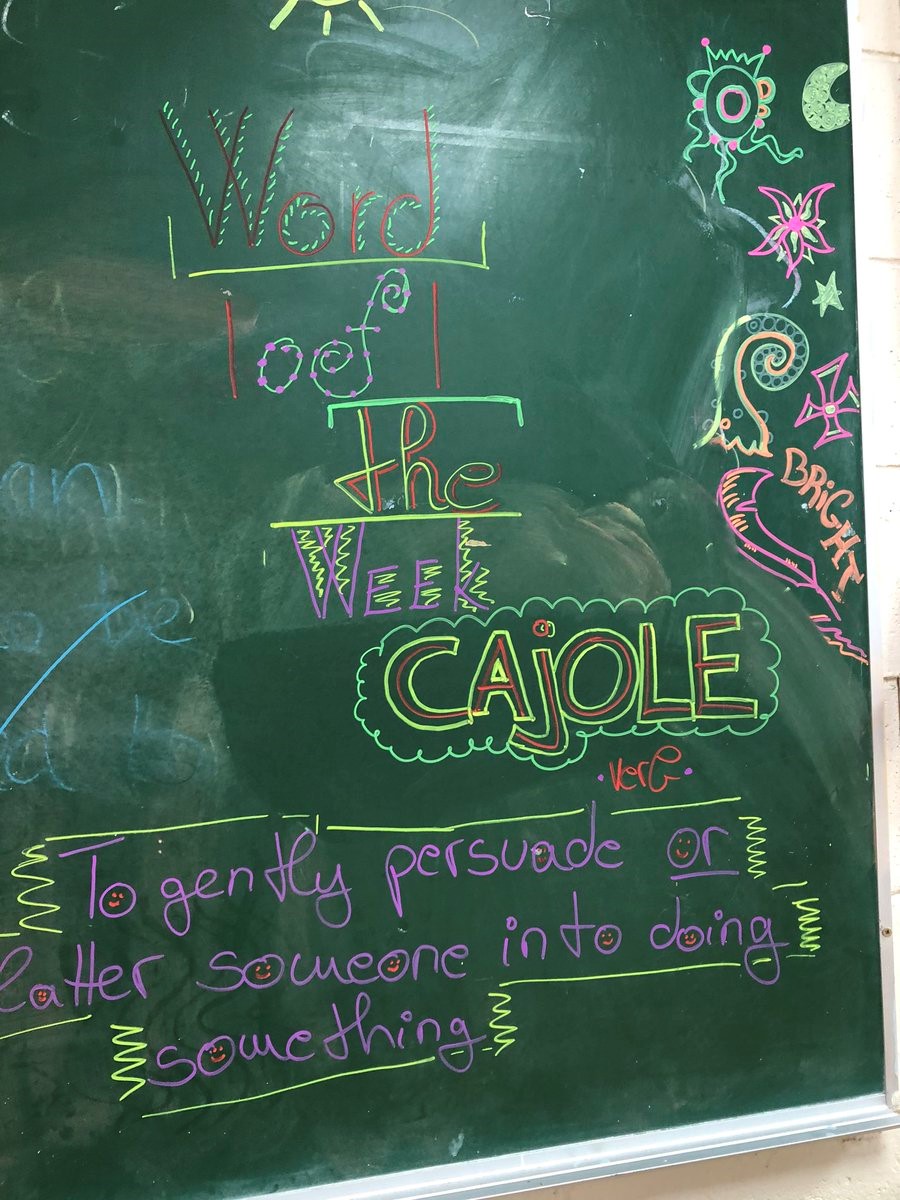 Word
of
the
WEEK
BRiGHT
CAjOLE
verb
To gently persuade or
latter someone into doing
something